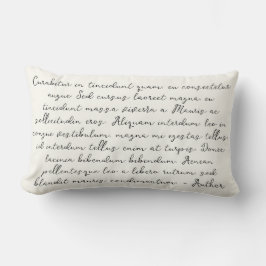 Curabitur in tincidunt quam, eu consectetur
augue. Sed cursus laoreet magna eu
tincidunt massa viverra a. Mauris ac
sollicitudin eros. Aliquam interdum leo in
congue vestibulum, magna mi egestas tellus,
id interdum tellus enim at turpis. Donec
lacinia bibendum bibendum. Aenean
pellentesque leo a libero rutrum, sed
blandit mauris condimentum. - Author